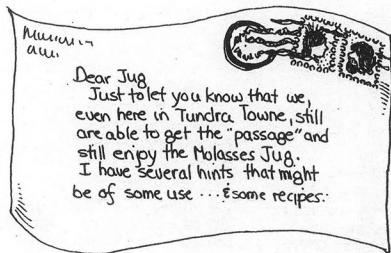 Dear Jug
Just to let you know that we,
even here in Tundra Towne, still
are able to get the "passage" and
still enjoy the Molasses Jug.
I have several hints that might
be of some use ... & some recipes.